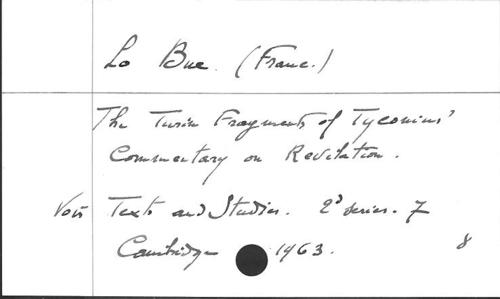 Lo Bue. (Franc.)
The Turin Fragments of Tyconius'
Commentary on Revelation.
Voir Texts and Studies. 2d series. 7
Cambridge 1963. 8